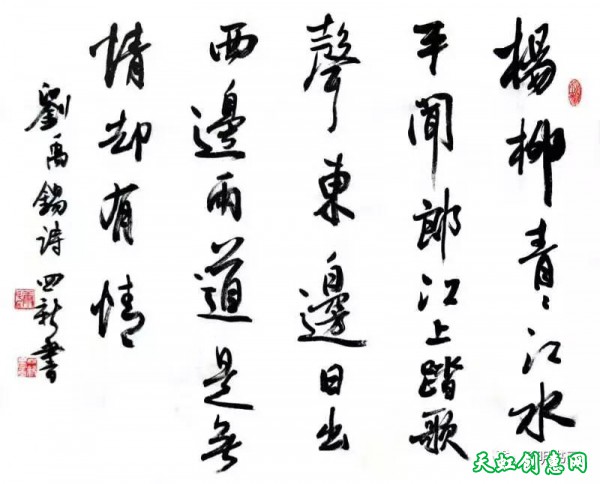 楊柳青〻江水
平聞郎江上踏歌
聲東邊日出
西邊雨道是無
情却有情
劉禹錫詩 四新書
天虹创意网